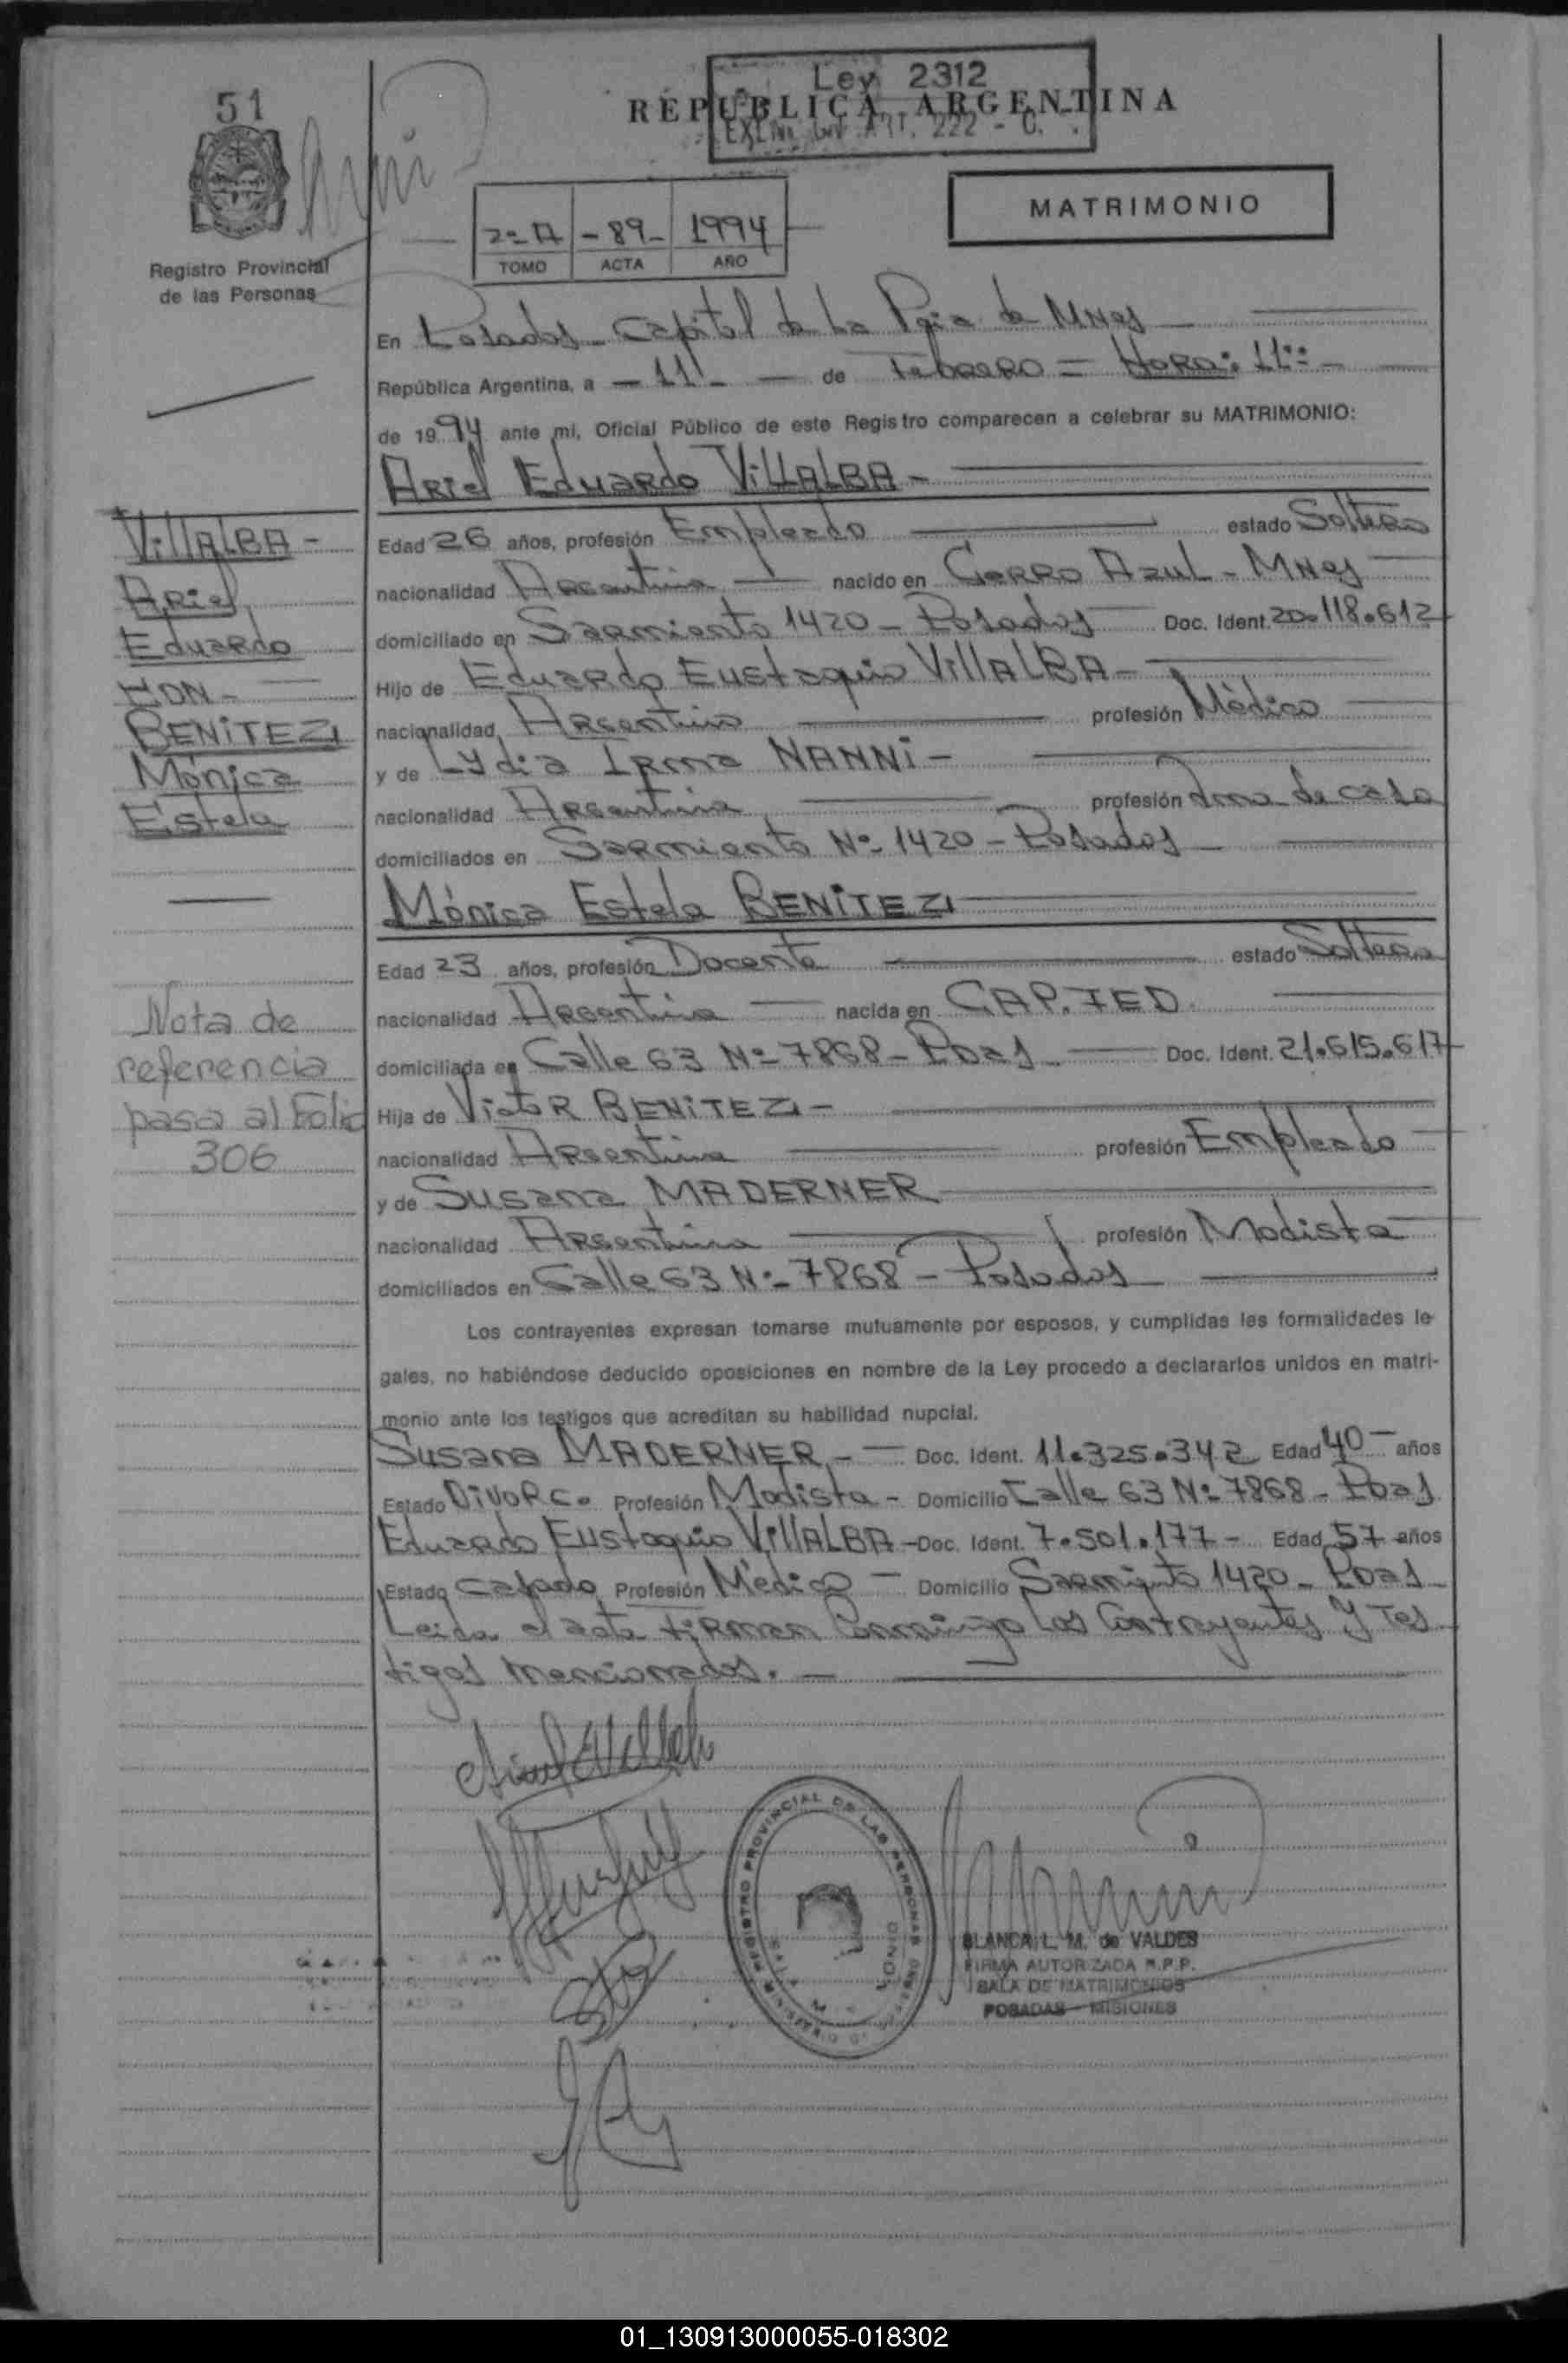 51
Ley 2312
REPUBLICA ARGENTINA
ART. 222 - C.
MATRIMONIO
2º A - 89 - 1994
TOMO ACTA AÑO
Registro Provincial
de las Personas
En Posadas - Capital de La Pcia de Mnes
República Argentina, a - 11 - de Febrero = Hora: 11:
de 1994 ante mi, Oficial Público de este Registro comparecen a celebrar su MATRIMONIO:
Ariel Eduardo VillALBA -
Edad 26 años, profesión Empleado estado Soltero
nacionalidad Argentina nacido en Cerro Azul - Mnes
domiciliado en Sarmiento 1420 - Posadas Doc. Ident. 20.118.612
Hijo de Eduardo Eustaquio VillALBA -
nacionalidad Argentino profesión Médico
y de Lydia Irma NANNi -
nacionalidad Argentina profesión Ama de casa
domiciliados en Sarmiento Nº 1420 - Posadas
Mónica Estela BENiTEZ
Edad 23 años, profesión Docente estado Soltera
nacionalidad Argentina nacida en CAP. FED.
domiciliada en Calle 63 Nº 7868 - Pdas Doc. Ident. 21.615.617
Hija de Victor BENiTEZ -
nacionalidad Argentina profesión Empleado
y de Susana MADERNER
nacionalidad Argentina profesión Modista
domiciliados en Calle 63 Nº 7868 - Posadas
Los contrayentes expresan tomarse mutuamente por esposos, y cumplidas les formalidades le-
gales, no habiéndose deducido oposiciones en nombre de la Ley procedo a declararlos unidos en matri-
monio ante los testigos que acreditan su habilidad nupcial.
Susana MADERNER - Doc. Ident. 11.325.342 Edad 40 años
Estado Divorc. Profesión Modista - Domicilio Calle 63 Nº 7868 - Pdas
Eduardo Eustaquio VillALBA - Doc. Ident. 7.501.177 - Edad 57 años
Estado Casado Profesión Médico - Domicilio Sarmiento 1420 - Pdas
Leida el acta firman Conmigo los Contrayentes Y Tes
tigos mencionados. -
VillALBA -
Ariel
Eduardo
CON -
BENiTEZ
Mónica
Estela
Nota de
referencia
pasa al Folio
306
REGISTRO PROVINCIAL DE LAS PERSONAS
BLANCA L. M. de VALDES
FIRMA AUTORIZADA R.P.P.
SALA DE MATRIMONIOS
POSADAS - MISIONES
01_130913000055-018302